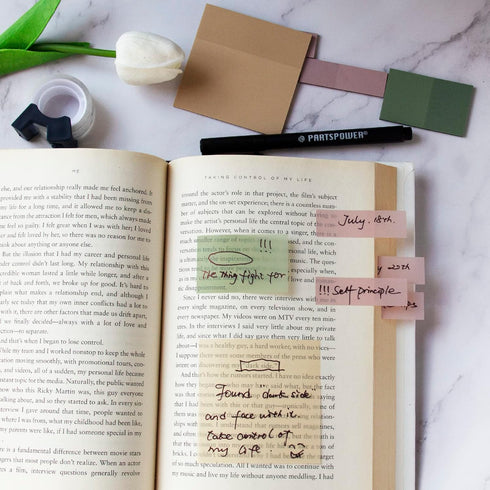 PARTSPOWER
ME
TAKING CONTROL OF MY LIFE
else, and our relationship really made me feel anchored. It
provided me with a stability that I had been missing from
my life for a long time, and it allowed me to keep a dis-
tance from the attraction I felt for men, which always made
me feel so guilty. I felt great when I was with her, I loved
her and felt loved by her, so there was no reason for me to
think about anything or anyone else.
But the illusion that I had my career and personal life
under control didn't last long. My relationship with this
incredible woman lasted a little while longer, and after a
of back and forth, we broke up for good. It's hard to
explain what makes a relationship end, and although I
clearly see today that my own inner conflicts had a lot to
with it, there are other factors that made us drift apart.
we finally decided—always with a lot of love and
affection—to separate.
And that's when I began to lose control.
While my team and I worked nonstop to keep the whole
operation moving smoothly, with promotional tours, con-
and videos, all of a sudden, my personal life became
constant topic for the media. Naturally, the public wanted
know who this Ricky Martin was, this guy everyone
talking about, and so they started to ask. In every sin-
interview I gave around that time, people wanted to
where I was from, what my childhood had been like,
my parents were like, if I had someone special in my
There is a fundamental difference between movie stars
singers that people don't realize. When an actor
gives a film, interview questions generally revolve
around the actor's role in that project, the film's subject
matter, and the on-set experience; there is a countless num-
ber of subjects that can be explored without having to
make the artist's personal life the central topic of the
conversation. However, when it comes to a singer, there is a much
smaller range of topics
tends to focus on
!!!
the inspiration
The thing fight for.
July. 18th.
y 20th
!!! Self principle
Since I never said no, there were interviews with me in
every single magazine, on every television show, and in
every newspaper. My videos were on MTV every ten min-
utes. In the interviews I said very little about my private
life, and since what I did say gave them very little to talk
about—I was a healthy guy, a hard worker, with novios—
I suppose there were some members of the press who were
intent on discovering my "dark side."
And that's how the rumors started. I have no idea exactly
Found "dark side"
and face with it.
take control of
my life!
of so much speculation. All I wanted was to continue with
my music and live my life without anyone meddling. I had